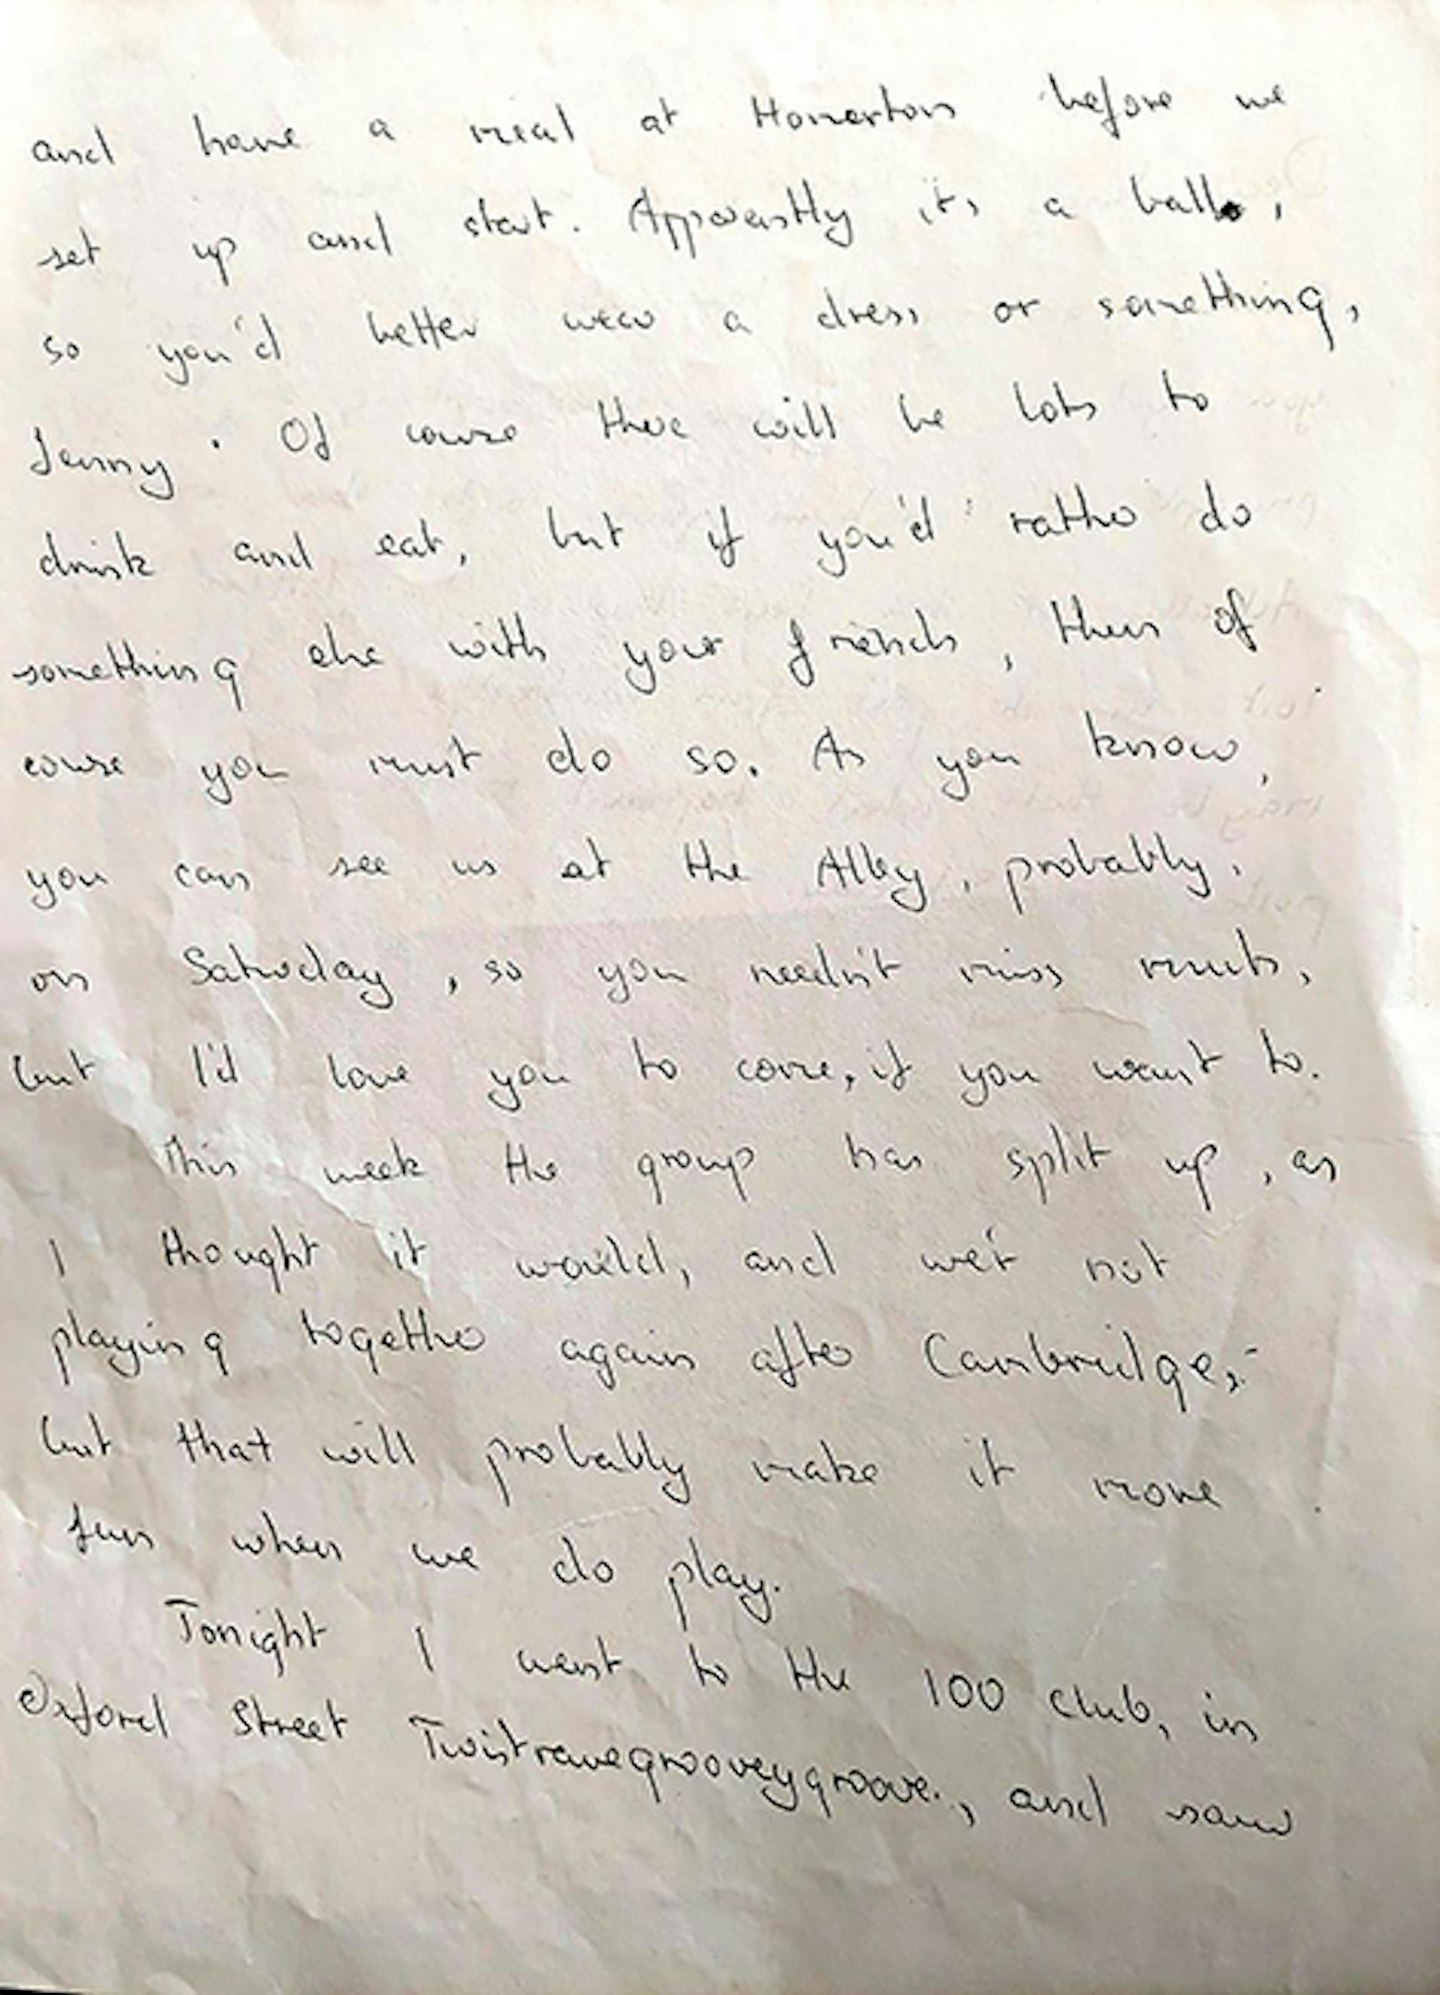 and have a meal at Homerton before we
set up and start. Apparently its a ball,
so you'd better wear a dress or something,
Jenny. Of course there will be lots to
drink and eat, but if you'd rather do
something else with your friends, then of
course you must do so. As you know,
you can see us at the Alley, probably,
on Saturday, so you needn't miss much,
but I'd love you to come, if you want to.
This week the group has split up, as
I thought it would, and we're not
playing together again after Cambridge,
but that will probably make it more
fun when we do play.
Tonight I went to the 100 club, in
Oxford Street Twistravegrooveygroove., and saw